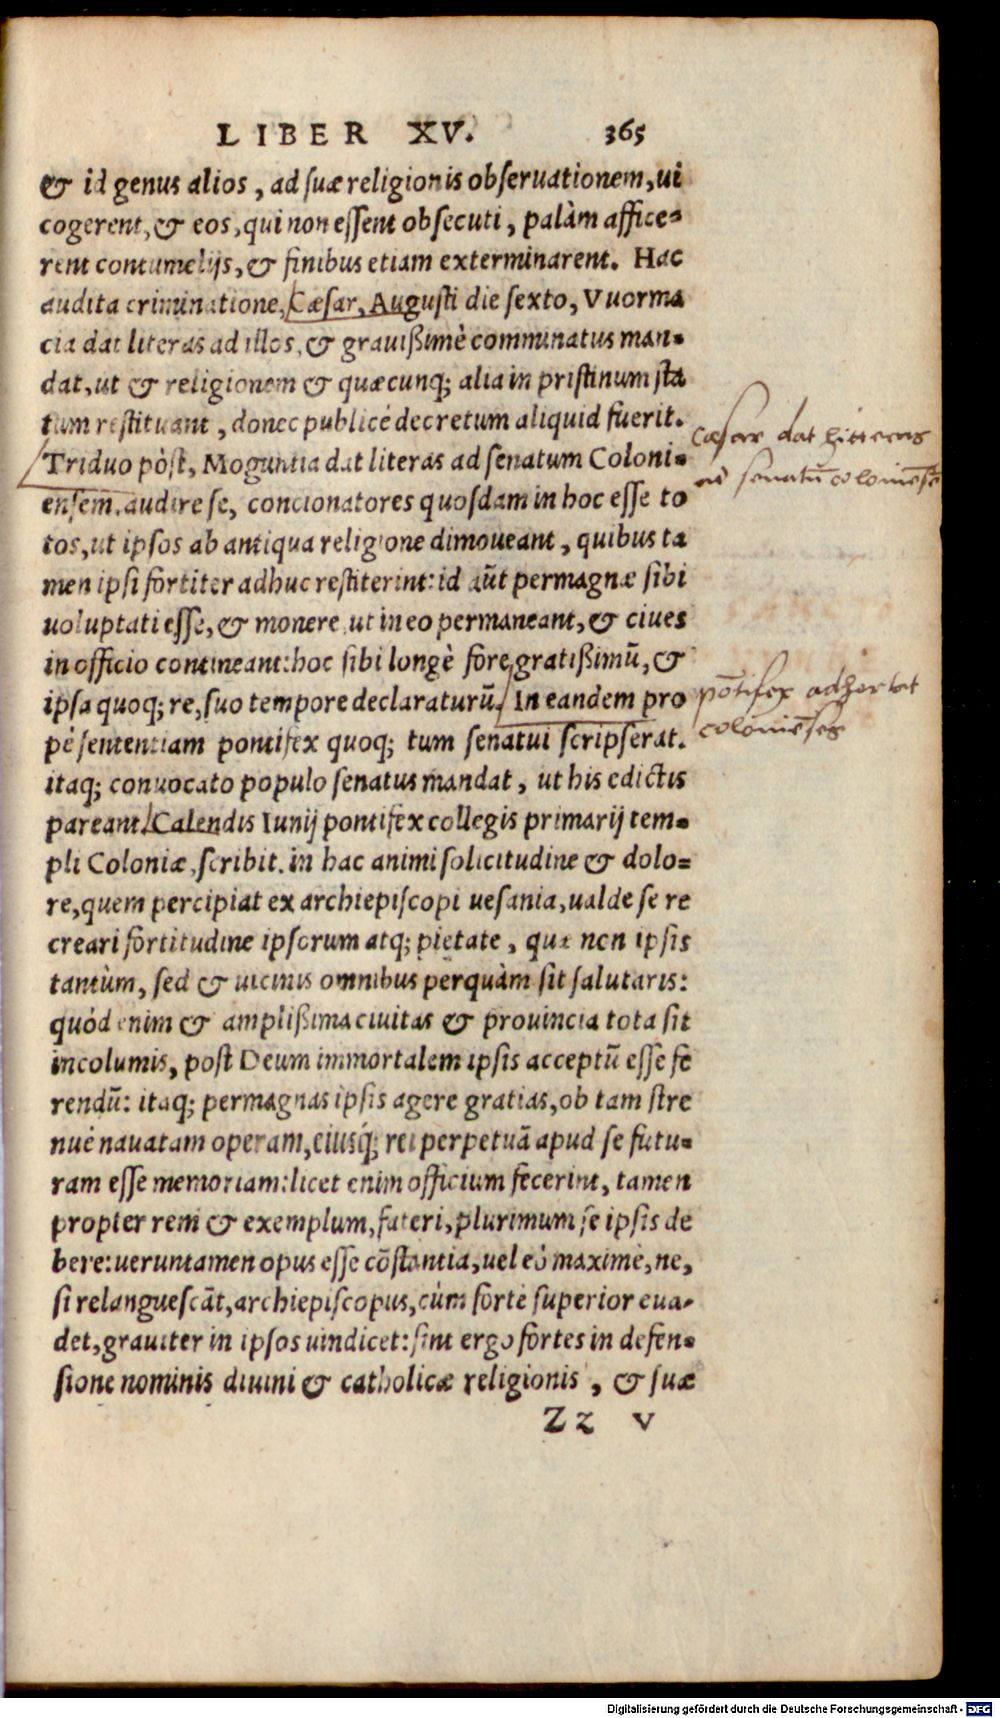 LIBER XV. 365
& id genus alios, ad suæ religionis obseruationem, ui
cogerent, & eos, qui non essent obsecuti, palàm affice-
rent contumelijs, & finibus etiam exterminarent. Hac
audita criminatione, Cæsar, Augusti die sexto, Vuorma
cia dat literas ad illos, & grauißimè comminatus man-
dat, ut & religionem & quæcunq; alia in pristinum sta
tum restituant, donec publicè decretum aliquid fuerit.
Triduo pòst, Moguntia dat literas ad senatum Coloni-
ensem. audire se, concionatores quosdam in hoc esse to
tos, ut ipsos ab antiqua religione dimoueant, quibus ta
men ipsi fortiter adhuc restiterint: id aũt permagnæ sibi
uoluptati esse, & monere ut in eo permaneant, & ciues
in officio contineant: hoc sibi longè fore gratißimũ, &
ipsa quoq; re, suo tempore declaraturũ. In eandem pro
pè sententiam pontifex quoq; tum senatui scripserat.
itaq; conuocato populo senatus mandat, ut his edictis
pareant. Calendis Iunij pontifex collegis primarij tem-
pli Coloniæ, scribit. in hac animi solicitudine & dolo-
re, quem percipiat ex archiepiscopi uesania, ualde se re
creari fortitudine ipsorum atq; pietate, quæ non ipsis
tantùm, sed & uicinis omnibus perquàm sit salutaris:
quòd enim & amplißima ciuitas & prouincia tota sit
incolumis, post Deum immortalem ipsis acceptũ esse fe
rendũ: itaq; permagnas ipsis agere gratias, ob tam stre
nuè nauatam operam, eiusq́; rei perpetuã apud se futu-
ram esse memoriam: licet enim officium fecerint, tamen
propter rem & exemplum, fateri, plurimum se ipsis de
bere: ueruntamen opus esse cõstantia, uel eò maximè, ne,
si relanguescãt, archiepiscopus, cùm fortè superior eua-
det, grauiter in ipsos uindicet: sint ergo fortes in defen-
sione nominis diuini & catholicæ religionis, & suæ
Zz v
Cæsar dat litteras
ad senatũ coloniẽsẽ
põtifex adhortat
coloniẽses
Digitalisierung gefördert durch die Deutsche Forschungsgemeinschaft - DFG